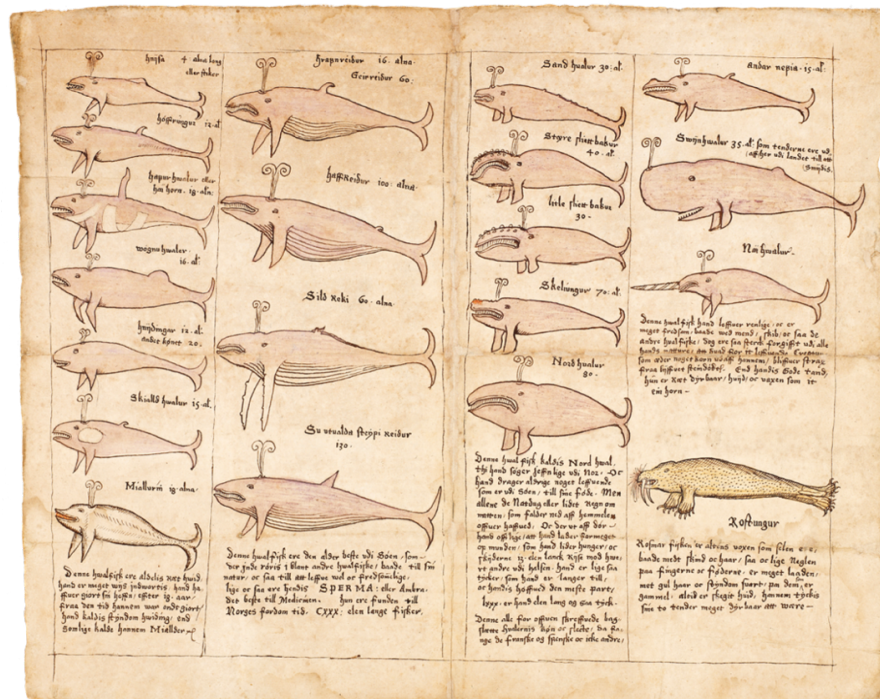 hnijsa 4 alna lang
eller fisker
höffrungur 12 al
hapurhwalur eller
hai horn. 18. alna
wognuhwalur.
16. al
hnijdingar 12. al.
andet kønet 20.
Skialld hwalur 15. al.
Miallurin 19. alna.
Denne hwalfisk ere aldelis ræt huid
hand er meget
offuer giort fin hessen; efter 19. aar
fraa den tid hannem war ende giort
hand kaldis styndom huiding; end
gamlige kalde hannem Miallder
hrapnreidur 16. alna.
Geirreidur 60.
haffReidur 100. alna.
Sild Reki 60. alna.
Su utualda steypi reidur
130.
Denne hwalfisk ere den alder beste udi Søen, som
der inde røris; i blant andre hwalfiske; baade til sin
natur, or saa till att leffue wel or fredsomlige,
lige or saa ere hendis SPERMA; eller Ambra.
det beste till Medicinen. hun ere funden till
Norges fordom tid. CXXX: elen lange fisker.
Sand hwalur 30. al.
Større flettbakur
40. al.
litle flett bakur
30.
Skeliungur 70. al.
Nord hwalur
80.
Denne hwalfisk kaldis Nord hwal,
thi hand søger jeffnlige udi Nor. Or
hand drager aldrige noget leffuende
som er udi Søen, till sine føde. Men
allene de Natdug eller lidet Regn om
natten; som falder ned aff hemmelen
offuer haffued. Or der ut aff dør
hand offte; att hand lader farmeget
op munden; som hand lider hunger, or
skiederne 12. elen lanck
ut andre udi halsen. hand er lige saa
tycker, som hand er langer till,
or handis hoffued den meste part,
lxxx. er hand elen lang og saa tyck.
Denne alle for offuen skreffuede bag
slette hualernis køn or slecte; da fan
nge de franske og spenske or icke andre;
Andar nepia. 15. al.
Swijnhwalur 35. al. som tenderne ere ud
aff her udi landet till att
Smijdis.
Na hwalur.
Denne hwalfisk hand leffuer renlige; or er
meget fredsom; baade wed mend, skib, or saa de
andre hwalfiske; dog ere saa sterk forgifft udi alle
hands nature; att huad for it leffuende Creatur
som æder noget korn udaff hannem, bliffuer strax
fraa liffuet stendødt. End handis Gode tand,
hun er Ræt dyrbaar, huijd, or vaxen som it
ein horn.
Rostungur
Rosmar fisken er altins voxen som selen
baade medt skind or haar; saa or lige Neglen
paa fingerne or fødderne. er meget landen;
met gul haar or styndom suært; paa dem, er
gammel; altid er skegit huid; hannem tyckis
sine to tender meget dyrbaar att være